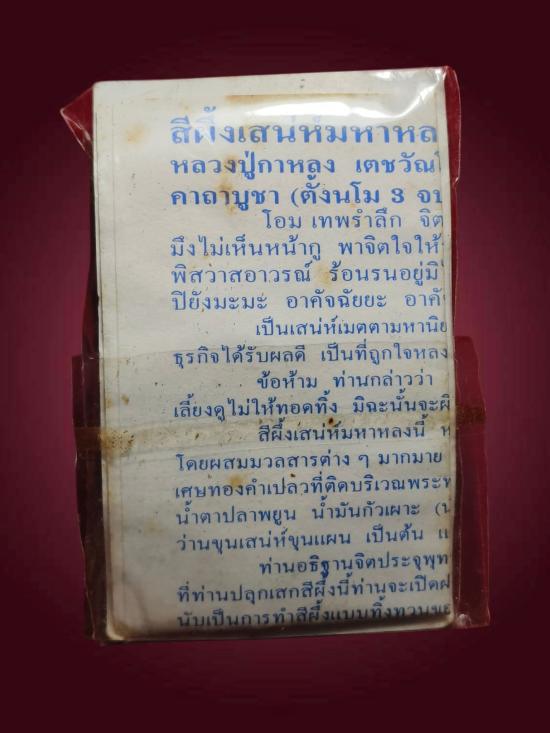 สีผึ้งเสน่ห์มหาหล
หลวงปู่กาหลง เตชวัณโ
คาถาบูชา (ตั้งนโม 3 จบ
โอม เทพรำลึก จิต
มึงไม่เห็นหน้ากู พาจิตใจให้
พิสวาสอาวรณ์ ร้อนรนอยู่มิ
ปิยังมะมะ อาคัจฉัยยะ อาคั
เป็นเสน่ห์เมตตามหานิย
ธุรกิจได้รับผลดี เป็นที่ถูกใจหลง
ข้อห้าม ท่านกล่าวว่า
เลี้ยงดูไม่ให้ทอดทิ้ง มิฉะนั้นจะผิ
สีผึ้งเสน่ห์มหาหลงนี้
โดยผสมมวลสารต่าง ๆ มากมาย
เศษทองคำเปลวที่ติดบริเวณพระพ
น้ำตาปลาพยูน น้ำมันกัวเผาะ (น้
ว่านขุนเสน่ห์ขุนแผน เป็นต้น แ
ท่านอธิฐานจิตประจุพุท
ที่ท่านปลุกเสกสีผึ้งนี้ท่านจะเปิดฝ
นับเป็นการทำสีผึ้งแบบทิ้งทวนขอ